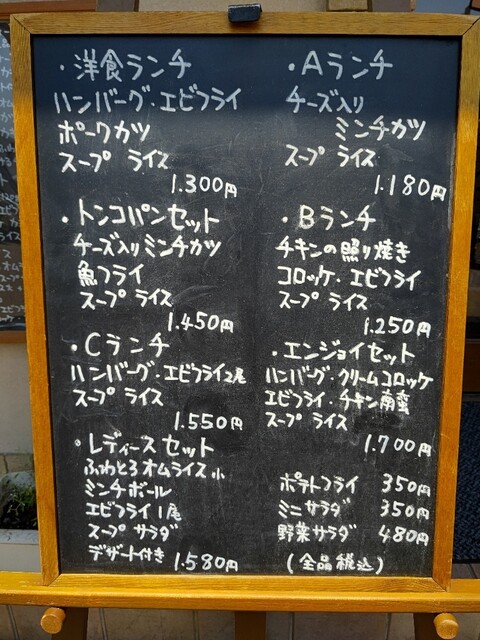 ・洋食ランチ
ハンバーグ・エビフライ
ポークカツ
スープ ライス
1.300円
・トンコパンセット
チーズ入りミンチカツ
魚フライ
スープ ライス
1.450円
・Cランチ
ハンバーグ・エビフライ2尾
スープ ライス
1.550円
・レディースセット
ふわとろオムライス小
ミンチボール
エビフライ1尾
スープ サラダ
デザート付き 1.580円
・Aランチ
チーズ入り
ミンチカツ
スープ ライス
1.180円
・Bランチ
チキンの照り焼き
コロッケ・エビフライ
スープ ライス
1.250円
・エンジョイセット
ハンバーグ・クリームコロッケ
エビフライ・チキン南蛮
スープ ライス
1.700円
ポテトフライ 350円
ミニサラダ 350円
野菜サラダ 480円
(全品税込)